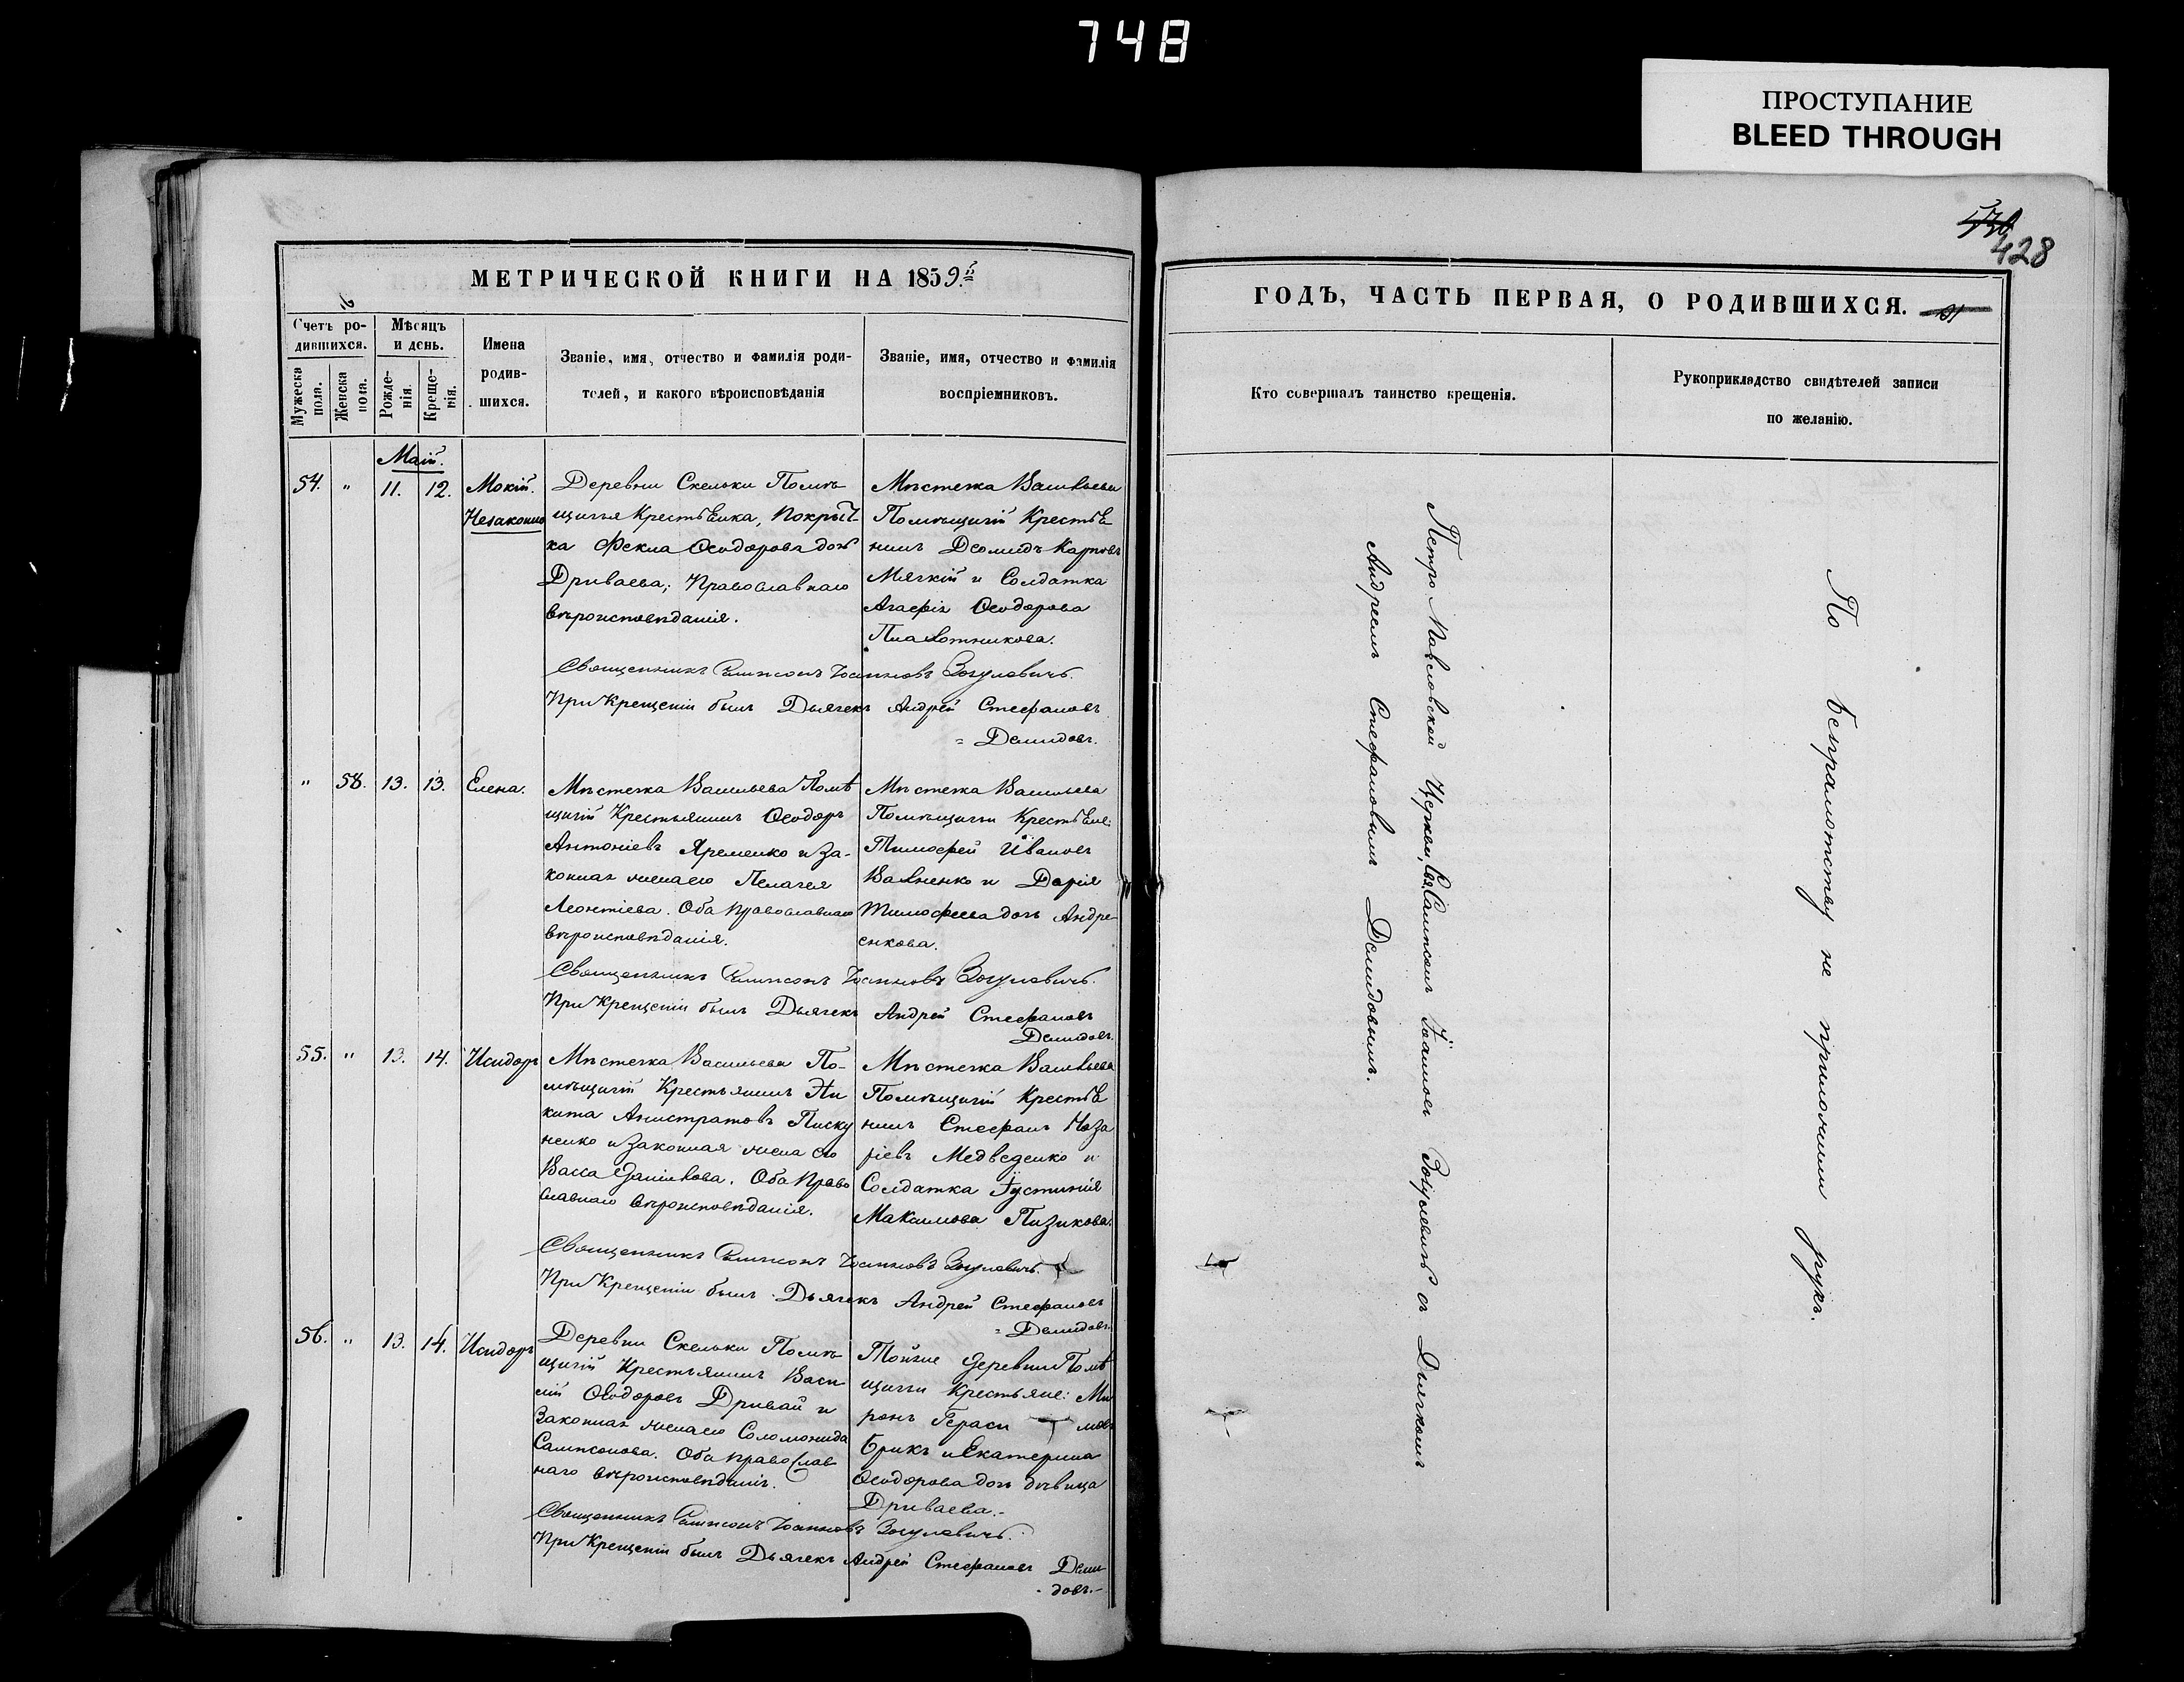 748
ПРОСТУПАНИЕ
BLEED THROUGH
428
МЕТРИЧЕСКОЙ КНИГИ НА 1859й
Счетъ ро-
дившихся.
Мужеска
пола.
Женска
пола.
Мѣсяцъ
и день.
Рожде-
нія.
Креще-
нія.
Имена
родив-
шихся.
Званіе, имя, отчество и фамилія роди-
телей, и какого вѣроисповѣданія
Званіе, имя, отчество и фамилія
воспріемниковъ.
Маій.
54. " 11. 12. Мокій.
Незаконно
Деревни Скельки Помѣ-
щичья Крестьянка, Покрыт-
ка Фекла Ѳеодорова дочь
Дриваева; Православнаго
вѣроисповѣданія.
Мѣстечка Васильева
Помѣщичій Крестья
нинъ Деомидъ Карповъ
Мягкій и Солдатка
Агафія Ѳеодорова
Плахотникова.
Священникъ Сампсонъ Іоанновъ Богуловичъ.
При Крещеніи былъ Дьячекъ Андрей Стефановъ
= Демидовъ.
" 58. 13. 13. Елена.
Мѣстечка Васильева Помѣ
щичій Крестьянинъ Ѳеодоръ
Антоніевъ Яременко и За-
конная жена его Пелагея
Леонтіева. Оба Православнаго
вѣроисповѣданія.
Мѣстечка Васильева
Помѣщичьи Крестьяне:
Тимофей Ивановъ
и Дарія
Тимофеева дочь Андре-
енкова.
Священникъ Сампсонъ Іоанновъ Богуловичъ.
При Крещеніи былъ Дьячекъ Андрей Стефановъ
Демидовъ.
55. " 13. 14. Исидоръ
Мѣстечка Васильева По-
мѣщичій Крестьянинъ Ни
кита Анистратовъ Писку
ненко и Законная жена его
Васса Даніилова. Оба Право
славнаго вѣроисповѣданія.
Мѣстечка Васильева
Помѣщичій Крестья
нинъ Стефанъ Наза
ріевъ Медведенко и
Солдатка Іустинія
Максимова Пизикова.
Священникъ Сампсонъ Іоанновъ Богуловичъ.
При Крещеніи былъ Дьячекъ Андрей Стефановъ
= Демидовъ.
56. " 13. 14. Исидоръ
Деревни Скельки Помѣ
щичій Крестьянинъ Васи
лій Ѳеодоровъ Дривай и
Законная жена его Соломонида
Сампсонова. Оба Православ
наго вѣроисповѣданія.
Тойже деревни Помѣ
щичьи Крестьяне: Ми
ронъ Гераси мовъ
Брикъ и Екатерина
Ѳеодорова дочь дѣвица
Дриваева.-
Священникъ Сампсонъ Іоанновъ Богуловичъ.
При Крещеніи былъ Дьячекъ Андрей Стефановъ Деми
довъ.-
ГОДЪ, ЧАСТЬ ПЕРВАЯ, О РОДИВШИХСЯ.
Кто совершалъ таинство крещенія.
Рукоприкладство свидѣтелей записи
по желанію.
Петро-Павловской Церкви, Свя. Сампсонъ Іоанновъ Богулевичъ съ Дьячкомъ
Андреемъ Стефановымъ Демидовымъ.
По безграмотству не приложили рукъ.